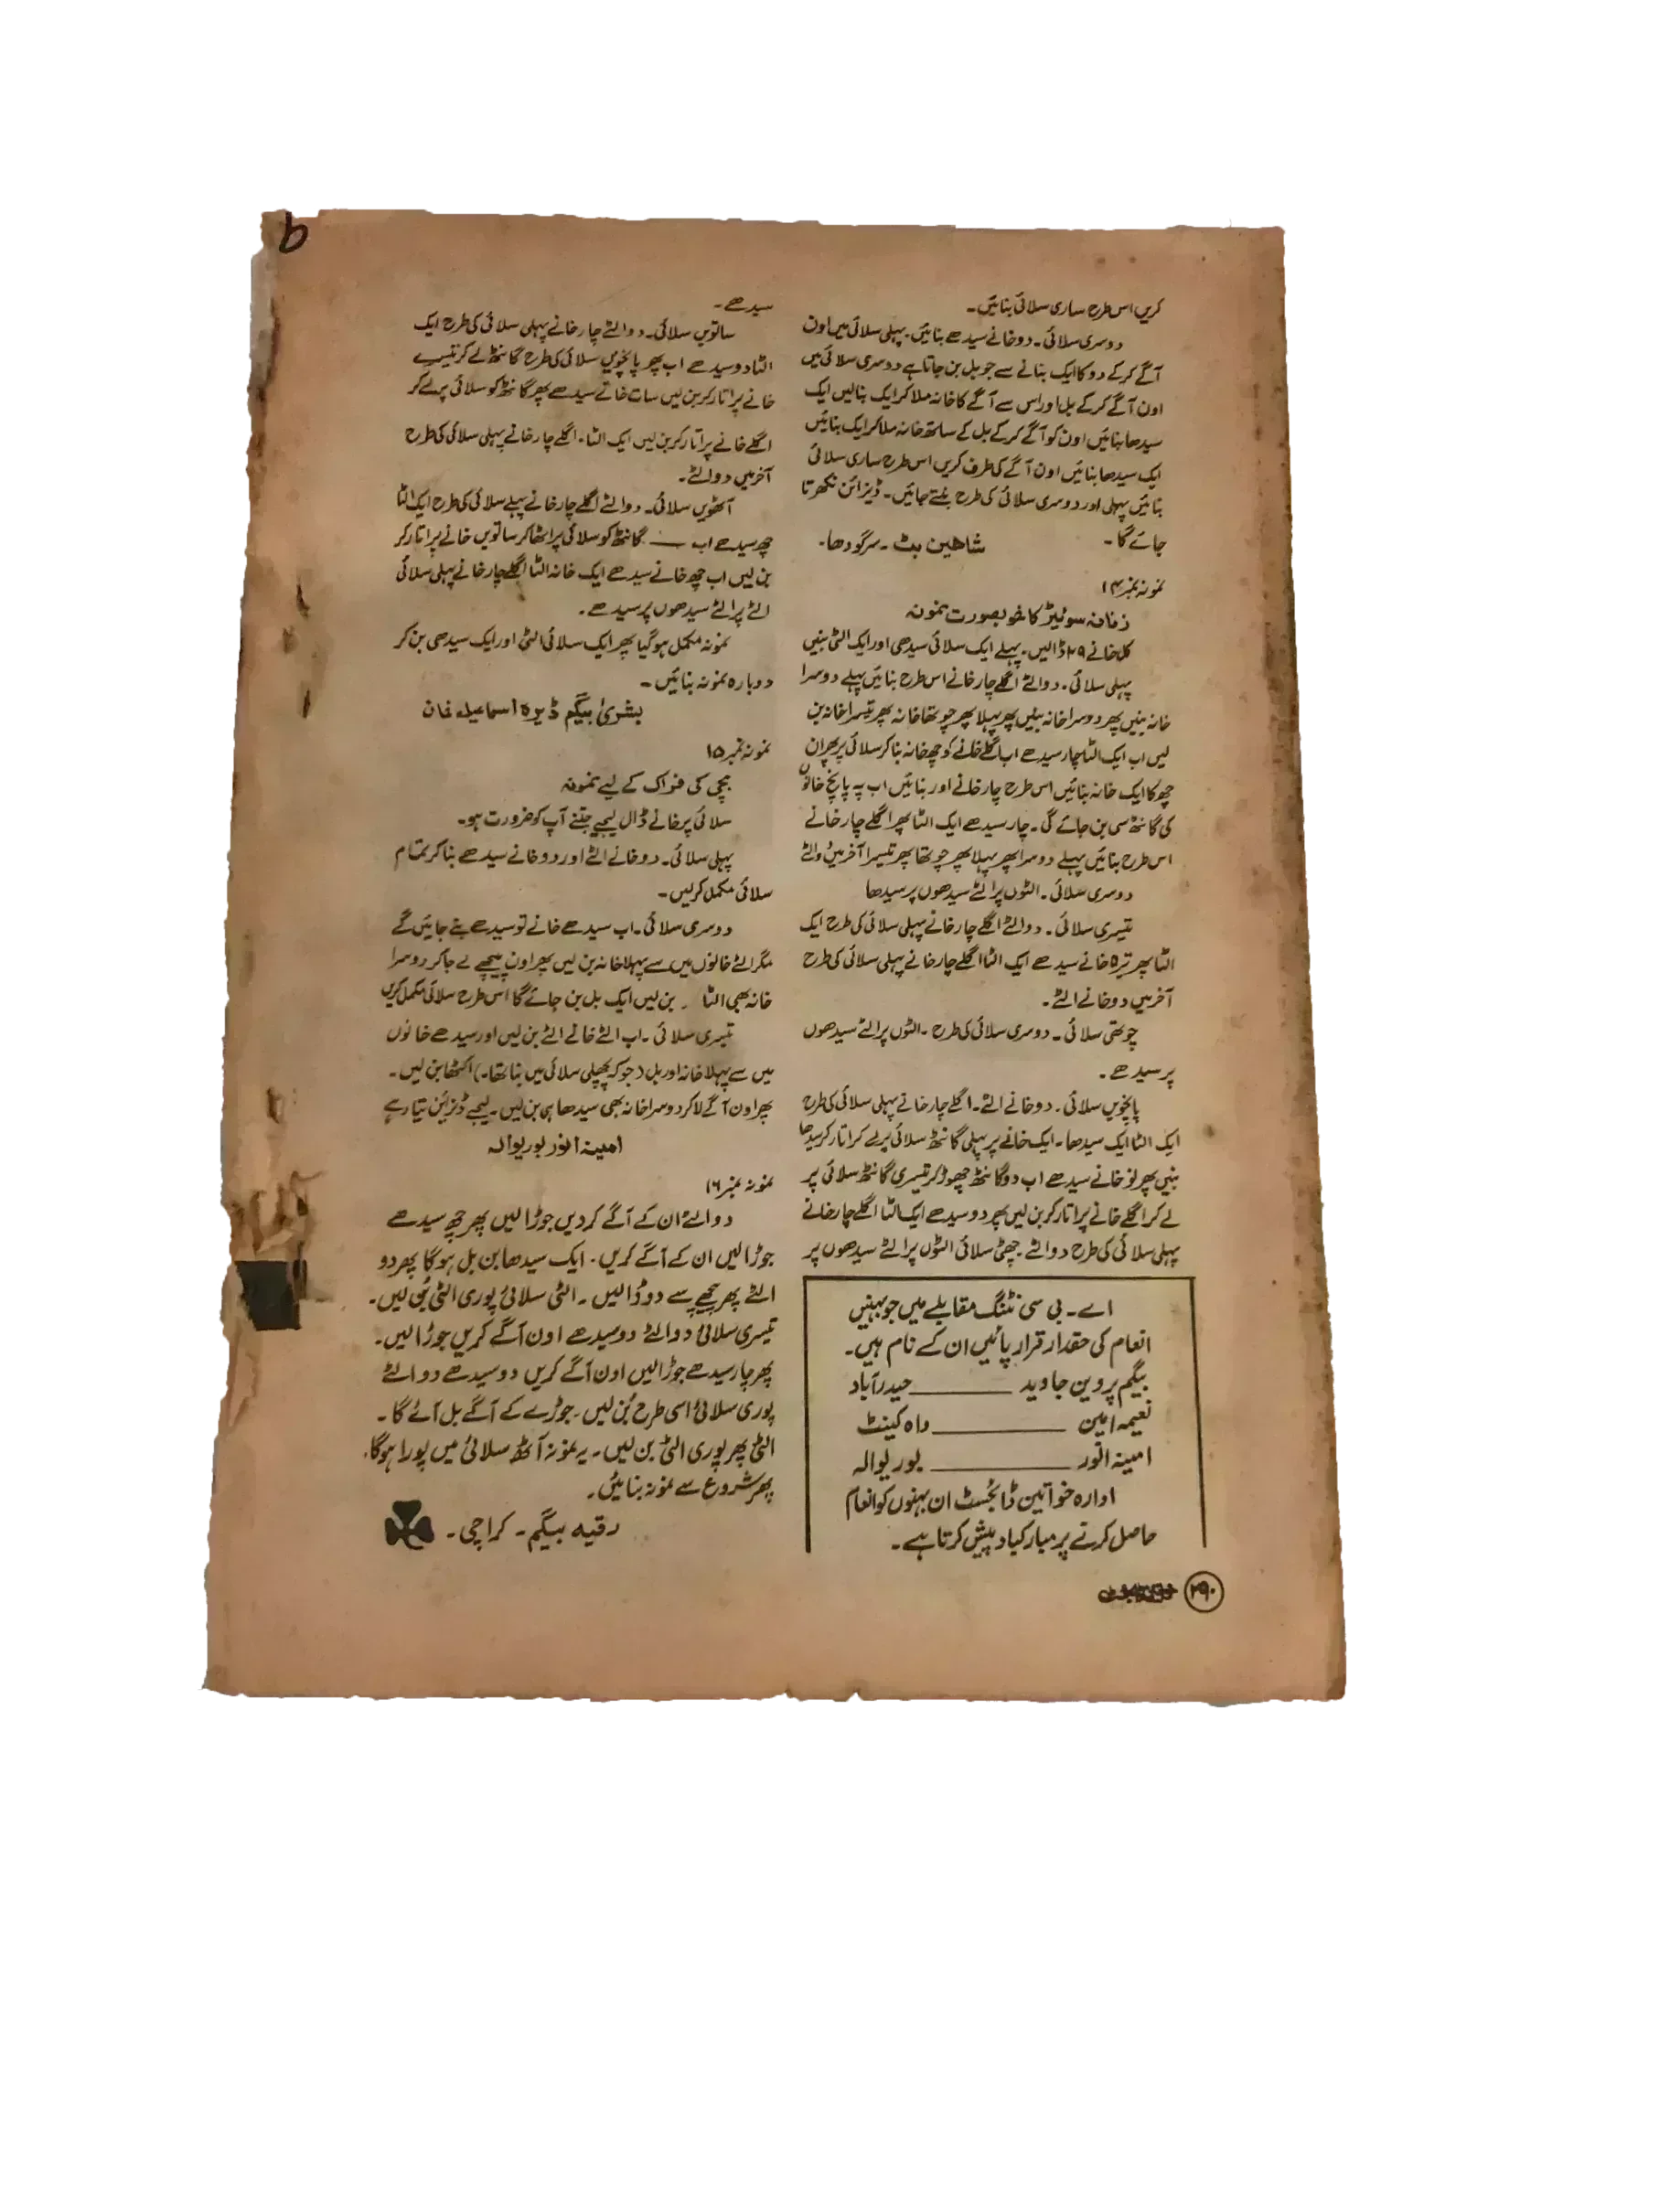 کریں اس طرح ساری سلائی بنائیں۔
دوسری سلائی۔ دو خانے سیدھے بنائیں۔ پہلی سلائی میں اون
آگے کرکے دو کا ایک بنانے سے جو بل بن جاتا ہے دوسری سلائی میں
اون آگے کرکے بل اور اس سے آگے کا خانہ ملا کر ایک بنالیں ایک
سیدھا بنائیں اون کو آگے کرکے بل کے ساتھ خانہ ملا کر ایک بنائیں
ایک سیدھا بنائیں اون آگے کی طرف کریں اس طرح ساری سلائی
بنائیں پہلی اور دوسری سلائی کی طرح بنتے جائیں۔ ڈیزائن نکھرتا
جائے گا۔ شاہین بٹ۔ سرگودھا۔
نمونہ نمبر ۱۴
زنانہ سوئیٹر کا خوبصورت نمونہ
کل خانے ۲۹ ڈالیں۔ پہلے ایک سلائی سیدھی اور ایک الٹی بنیں
پہلی سلائی۔ دو الٹے اگلے چار خانے اس طرح بنائیں پہلے دوسرا
خانہ بنیں پھر دوسرا خانہ بنیں پھر پہلا پھر چوتھا خانہ پھر تیسرا خانہ بن
لیں اب ایک الٹا چار سیدھے اب اگلے خانے کو چھ خانہ بنا کر سلائی پر پھر ان
چھ کا ایک خانہ بنائیں اس طرح چار خانے اور بنائیں اب یہ پانچ خانوں
کی گانٹھ سی بن جائے گی۔ چار سیدھے ایک الٹا پھر اگلے چار خانے
اس طرح بنائیں پہلے دوسرا پھر پہلا پھر چوتھا پھر تیسرا آخر میں دو الٹے
دوسری سلائی۔ الٹوں پر الٹے سیدھوں پر سیدھا
تیسری سلائی۔ دو الٹے اگلے چار خانے پہلی سلائی کی طرح ایک
الٹا پھر تیرہ خانے سیدھے ایک الٹا اگلے چار خانے پہلی سلائی کی طرح
آخر میں دو خانے الٹے۔
چوتھی سلائی۔ دوسری سلائی کی طرح۔ الٹوں پر الٹے سیدھوں
پر سیدھے۔
پانچویں سلائی۔ دو خانے الٹے۔ اگلے چار خانے پہلی سلائی کی طرح
ایک الٹا ایک سیدھا۔ ایک خانے پر پہلی گانٹھ سلائی پر لے کر اتار کر سیدھا
بنیں پھر نو خانے سیدھے اب دو گانٹھ چھوڑ کر تیسری گانٹھ سلائی پر
لے کر اگلے خانے پر اتار کر بن لیں پھر دو سیدھے ایک الٹا اگلے چار خانے
پہلی سلائی کی طرح دو الٹے۔ چھٹی سلائی الٹوں پر الٹے سیدھوں پر
اے۔ بی سی نٹنگ مقابلے میں جو بہنیں
انعام کی حقدار قرار پائیں ان کے نام ہیں۔
بیگم پروین جاوید ــــــــــ حیدرآباد
نعیمہ امین ــــــــــ واہ کینٹ
امینہ انور ــــــــــ بوریوالہ
ادارہ خواتین ڈائجسٹ ان بہنوں کو انعام
حاصل کرنے پر مبارکباد پیش کرتا ہے۔
۲۹۰
سیدھے۔
ساتویں سلائی۔ دو الٹے چار خانے پہلی سلائی کی طرح ایک
الٹا دو سیدھے اب پھر پانچویں سلائی کی طرح گانٹھ لے کر تیسرے
خانے پر اتار کر بن لیں سات خانے سیدھے پھر گانٹھ کو سلائی پر لے کر
اگلے خانے پر اتار کر بن لیں ایک الٹا۔ اگلے چار خانے پہلی سلائی کی طرح
آخر میں دو الٹے۔
آٹھویں سلائی۔ دو الٹے اگلے چار خانے پہلے سلائی کی طرح ایک الٹا
چھ سیدھے اب ــــ گانٹھ کو سلائی پر اٹھا کر ساتویں خانے پر اتار کر
بن لیں اب چھ خانے سیدھے ایک خانہ الٹا اگلے چار خانے پہلی سلائی
الٹے پر الٹے سیدھوں پر سیدھے۔
نمونہ مکمل ہوگیا پھر ایک سلائی الٹی اور ایک سیدھی بن کر
دوبارہ نمونہ بنائیں۔
بشریٰ بیگم ڈیرہ اسماعیل خان
نمونہ نمبر ۱۵
بچی کی فراک کے لیے نمونہ
سلائی پر خانے ڈال لیجیے جتنے آپ کو ضرورت ہو۔
پہلی سلائی۔ دو خانے الٹے اور دو خانے سیدھے بنا کر تمام
سلائی مکمل کرلیں۔
دوسری سلائی۔ اب سیدھے خانے تو سیدھے بنے جائیں گے
مگر الٹے خانوں میں سے پہلا خانہ بن لیں پھر اون پیچھے لے جا کر دوسرا
خانہ بھی الٹا۔ بن لیں ایک بل بن جائے گا اس طرح سلائی مکمل کریں
تیسری سلائی۔ اب الٹے خانے الٹے بن لیں اور سیدھے خانوں
میں سے پہلا خانہ اور بل (جو کہ پچھلی سلائی میں بنا تھا۔) اکٹھا بن لیں۔
پھر اون آگے لا کر دوسرا خانہ بھی سیدھا ہی بن لیں۔ لیجیے ڈیزئین تیار ہے
امینہ انور بوریوالہ
نمونہ نمبر ۱۶
دو الٹے ان کے آگے کردیں جوڑا لیں پھر چھ سیدھے
جوڑا لیں ان کے آگے کریں۔ ایک سیدھا بن بل ہوگا پھر دو
الٹے پھر پیچھے سے دو ڈالیں۔ الٹی سلائی پوری الٹی بُن لیں۔
تیسری سلائی دو الٹے دو سیدھے اون آگے کریں جوڑا لیں۔
پھر چار سیدھے جوڑا لیں اون آگے کریں دو سیدھے دو الٹے
پوری سلائی اسی طرح بُن لیں۔ جوڑے کے آگے بل آئے گا۔
الٹی پھر پوری الٹی بن لیں۔ یہ نمونہ آٹھ سلائی میں پورا ہوگا۔
پھر شروع سے نمونہ بنائیں۔
رقیہ بیگم۔ کراچی۔